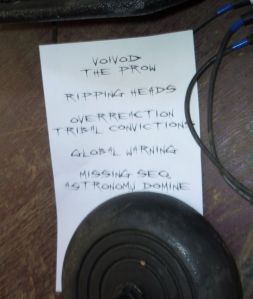 VOIVOD
THE PROW
RIPPING HEADS
OVERREACTION
TRIBAL CONVICTIONS
GLOBAL WARNING
MISSING SEQ.
ASTRONOMY DOMINE